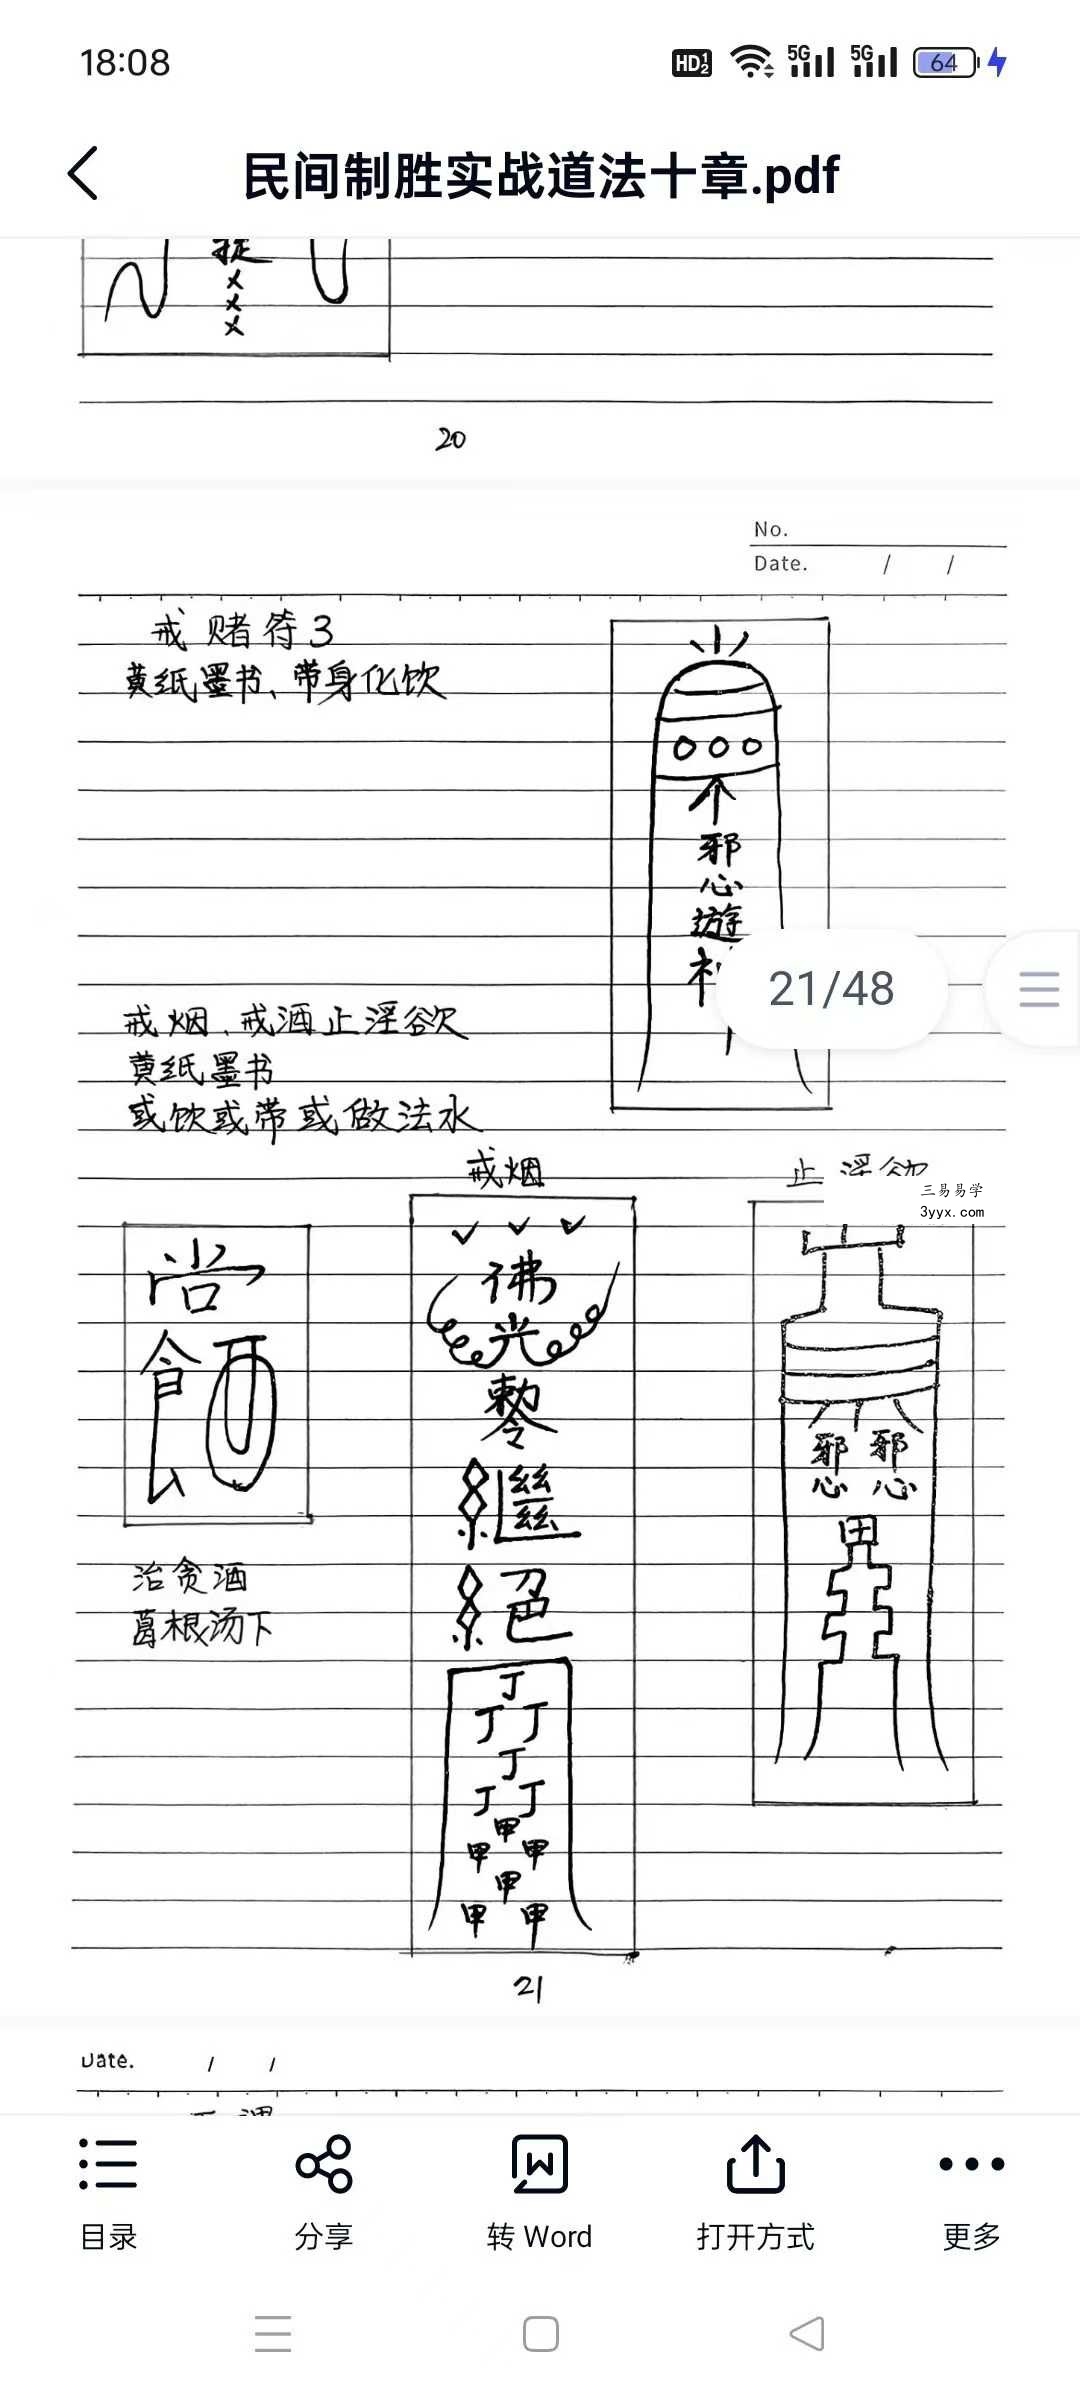 18:08
HD 1 2 5G 5G 64
民间制胜实战道法十章.pdf
捉
×
×
×
20
No.
Date. / /
戒赌符3
黄纸墨书、带身化饮
个
邪
心
遊
21/48
戒烟、戒酒止淫欲
黄纸墨书
或饮或带或做法水
戒烟
止淫欲
三易易学
3yyx.com
佛
光
繼
絕
丁
丁 丁
丁
丁 丁
甲
甲 甲
甲
甲 甲
邪 邪
心 心
田
治贪酒
葛根汤下
21
Date. / /
目录
分享
转 Word
打开方式
更多